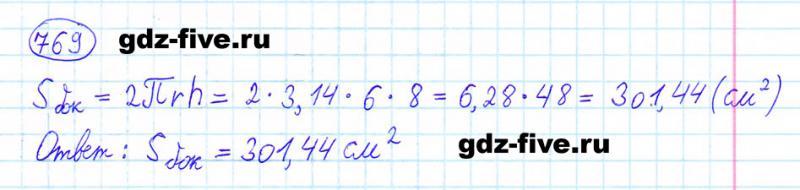 769 gdz-five.ru
Sбок = 2πrh = 2 · 3,14 · 6 · 8 = 6,28 · 48 = 301,44 (см²)
Ответ: Sбок = 301,44 см²
gdz-five.ru